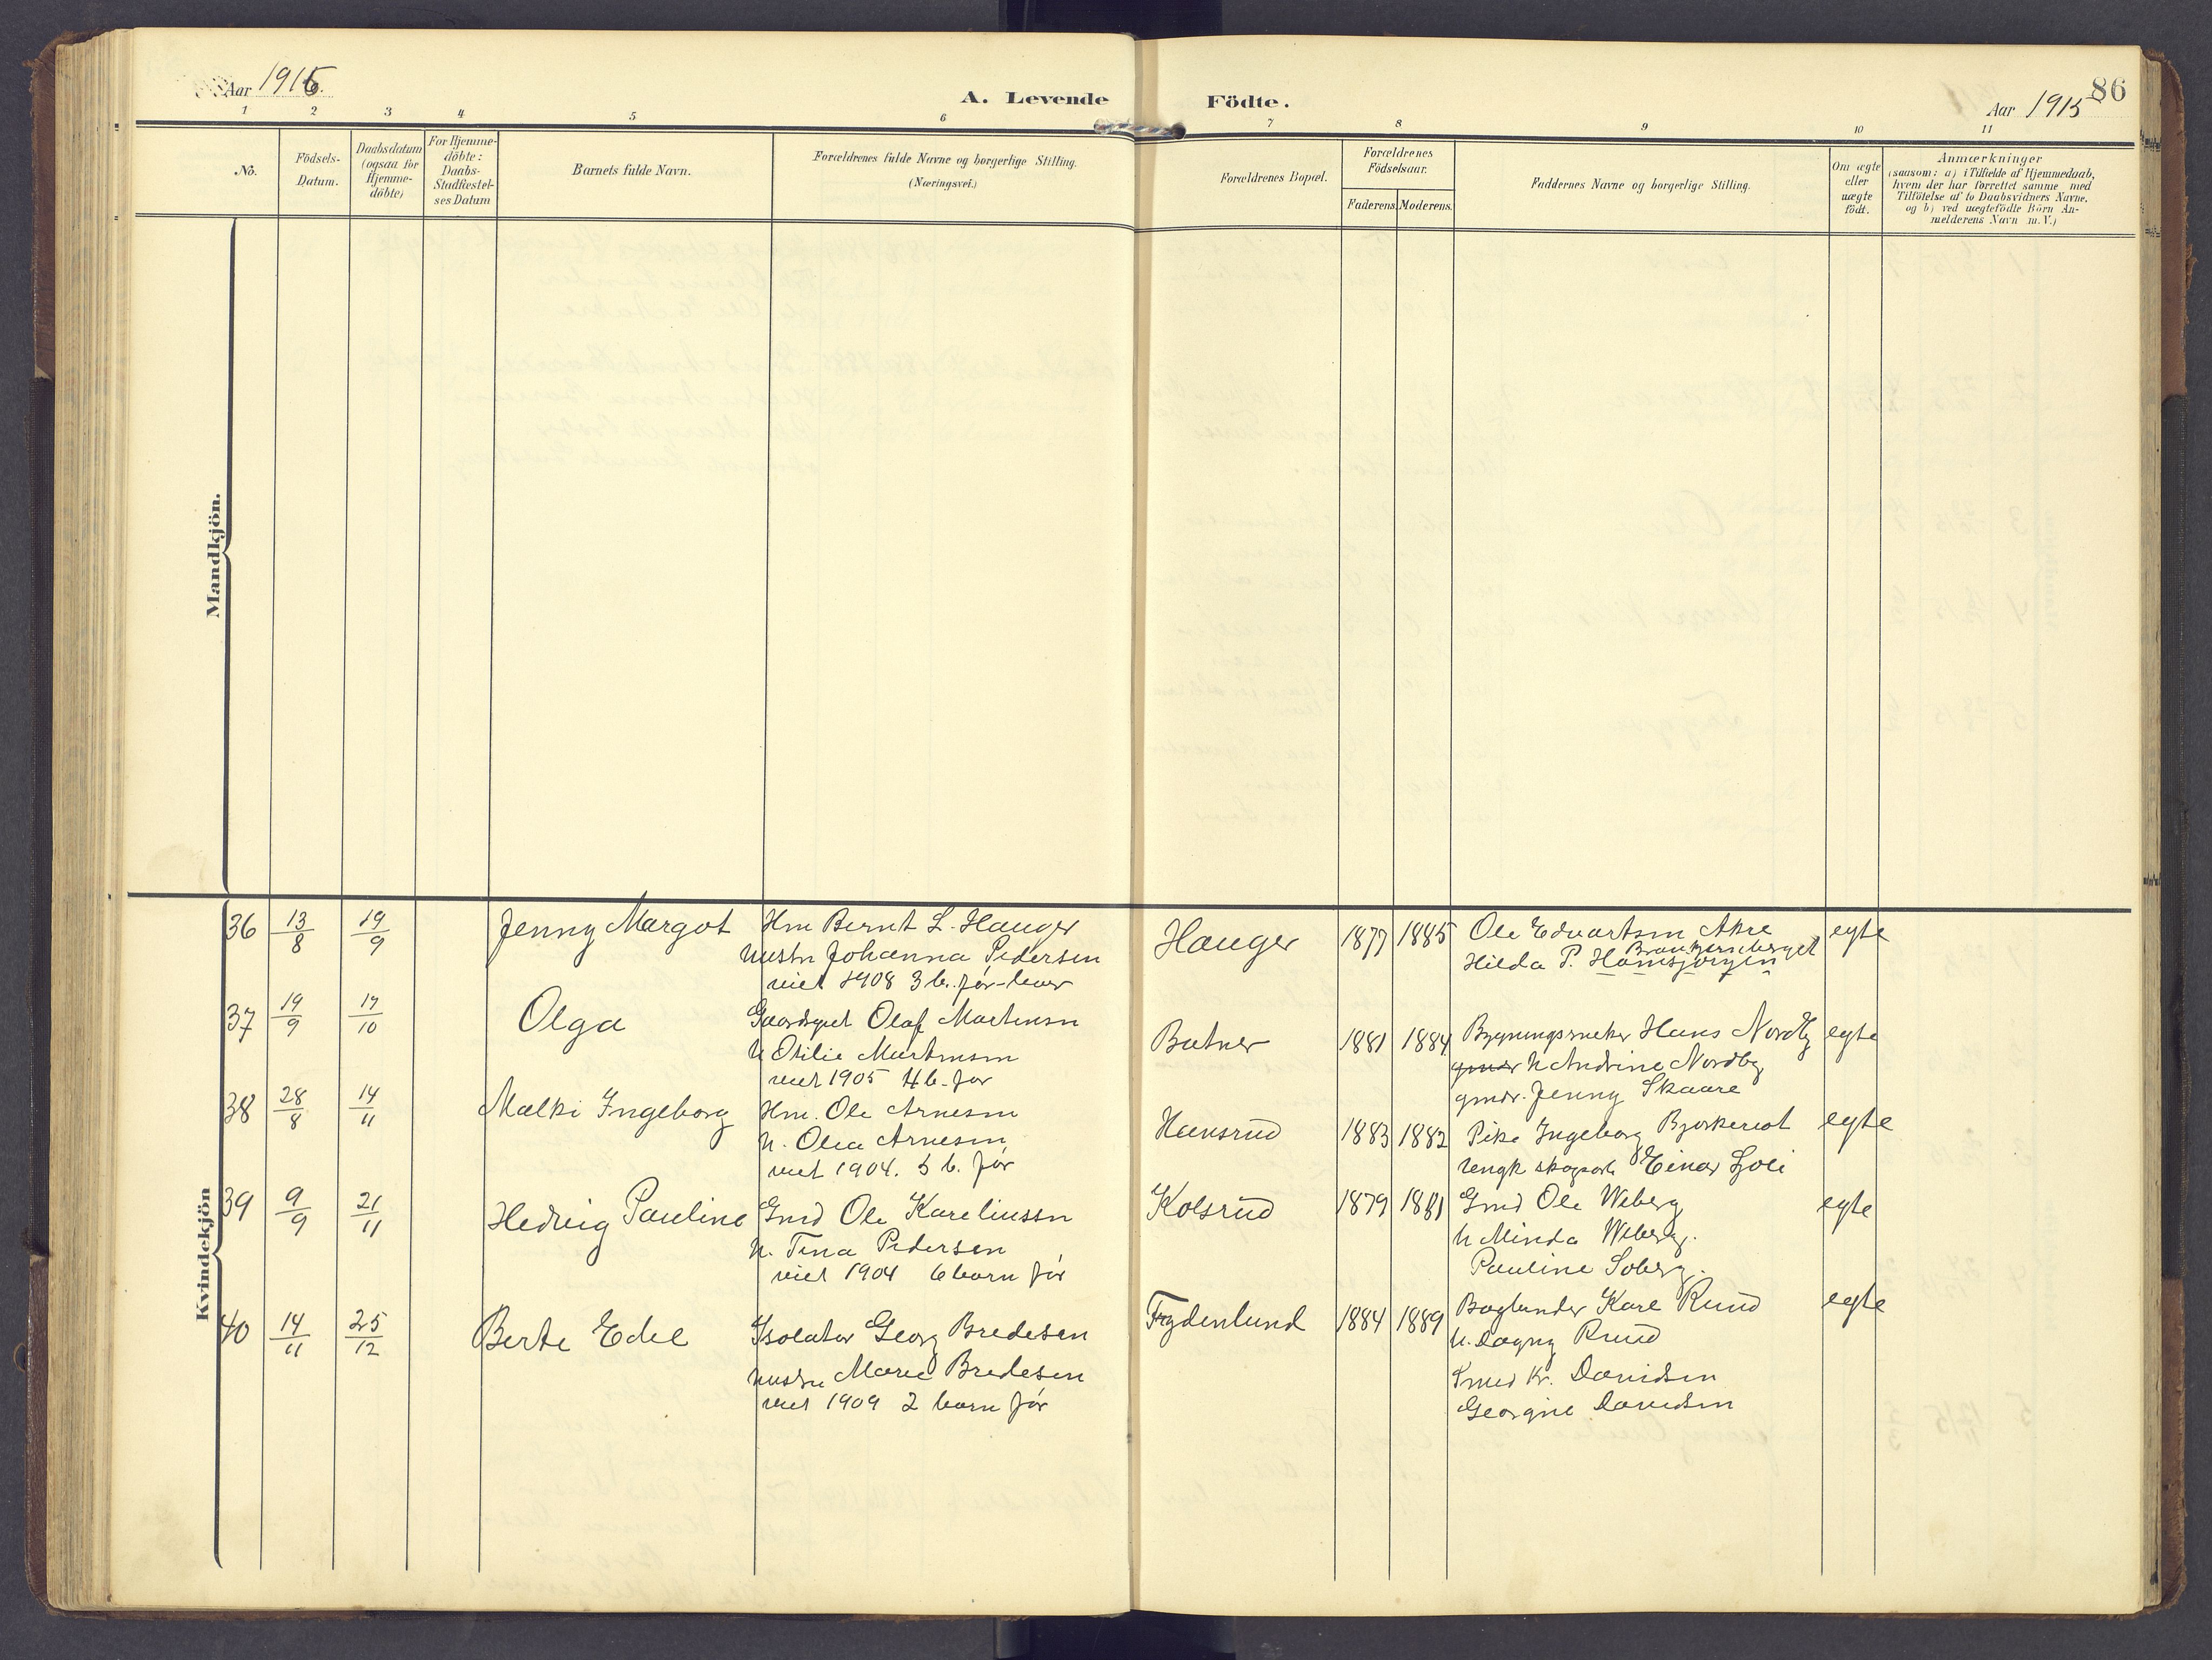 Aar 1915.
A. Levende Födte.
Aar 1915
86
1 2 3 4 5 6 7 8 9 10 11
No.
Födsels-
Datum.
Daabsdatum
(ogsaa for
Hjemme-
döbte)
For Hjemme-
döbte:
Daabs-
Stadfæstel-
ses Datum
Barnets fulde Navn.
Forældrenes fulde Navne og borgerlige Stilling.
(Næringsvei.)
Forældrenes Bopæl.
Forældrenes
Födselsaar.
Faderens. Moderens.
Faddernes Navne og borgerlige Stilling.
Om ægte
eller
uægte
födt.
Anmærkninger
(saasom: a) i Tilfælde af Hjemmedaab,
hvem der har forrettet samme med
Tilföielse af to Daabsvidners Navne,
og b) ved uægtefödte Börn An-
melderens Navn m. V.)
Mandkjön.
Kvindekjön
36 13/8 19/9 Jenny Margot
Hm Bernt L. Hauger
hustr Johanna Pedersen
viet 1908 3 b. før
Hauger 1877 1885
Ole Edvartsen Akre
Hilda P.
egte
37 19/9 17/10 Olga
Olaf Martinsen
h Otilie Martinsen
viet 1905 4 b. før
Butner 1881 1884
Hans Nordby
h Andrine Nordby
gmdr. Jenny Skaare
egte
38 28/8 14/11 Malki Ingeborg
Hm. Ole Arnesen
h. Olea Arnesen
viet 1904. 5 b. før
Hansrud 1883 1882
Pike Ingeborg
Einar
egte
39 9/9 21/11 Hedvig Pauline
Gmd Ole Kareliussen
h. Tina Pedersen
viet 1904 6 barn før
Kolsrud 1879 1881
Gmd Ole Weberg
h Minda Weberg.
Pauline Soberg.
egte
40 14/11 25/12 Berte Edel
Isolatør Georg Bredesen
hustru Marie Bredesen
viet 1909 2 barn før
Frydenlund 1884 1889
Bogbinder Karl Ruud
h. Dagny Ruud
Smed Kr. Davidsen
Georgine Davidsen
egte